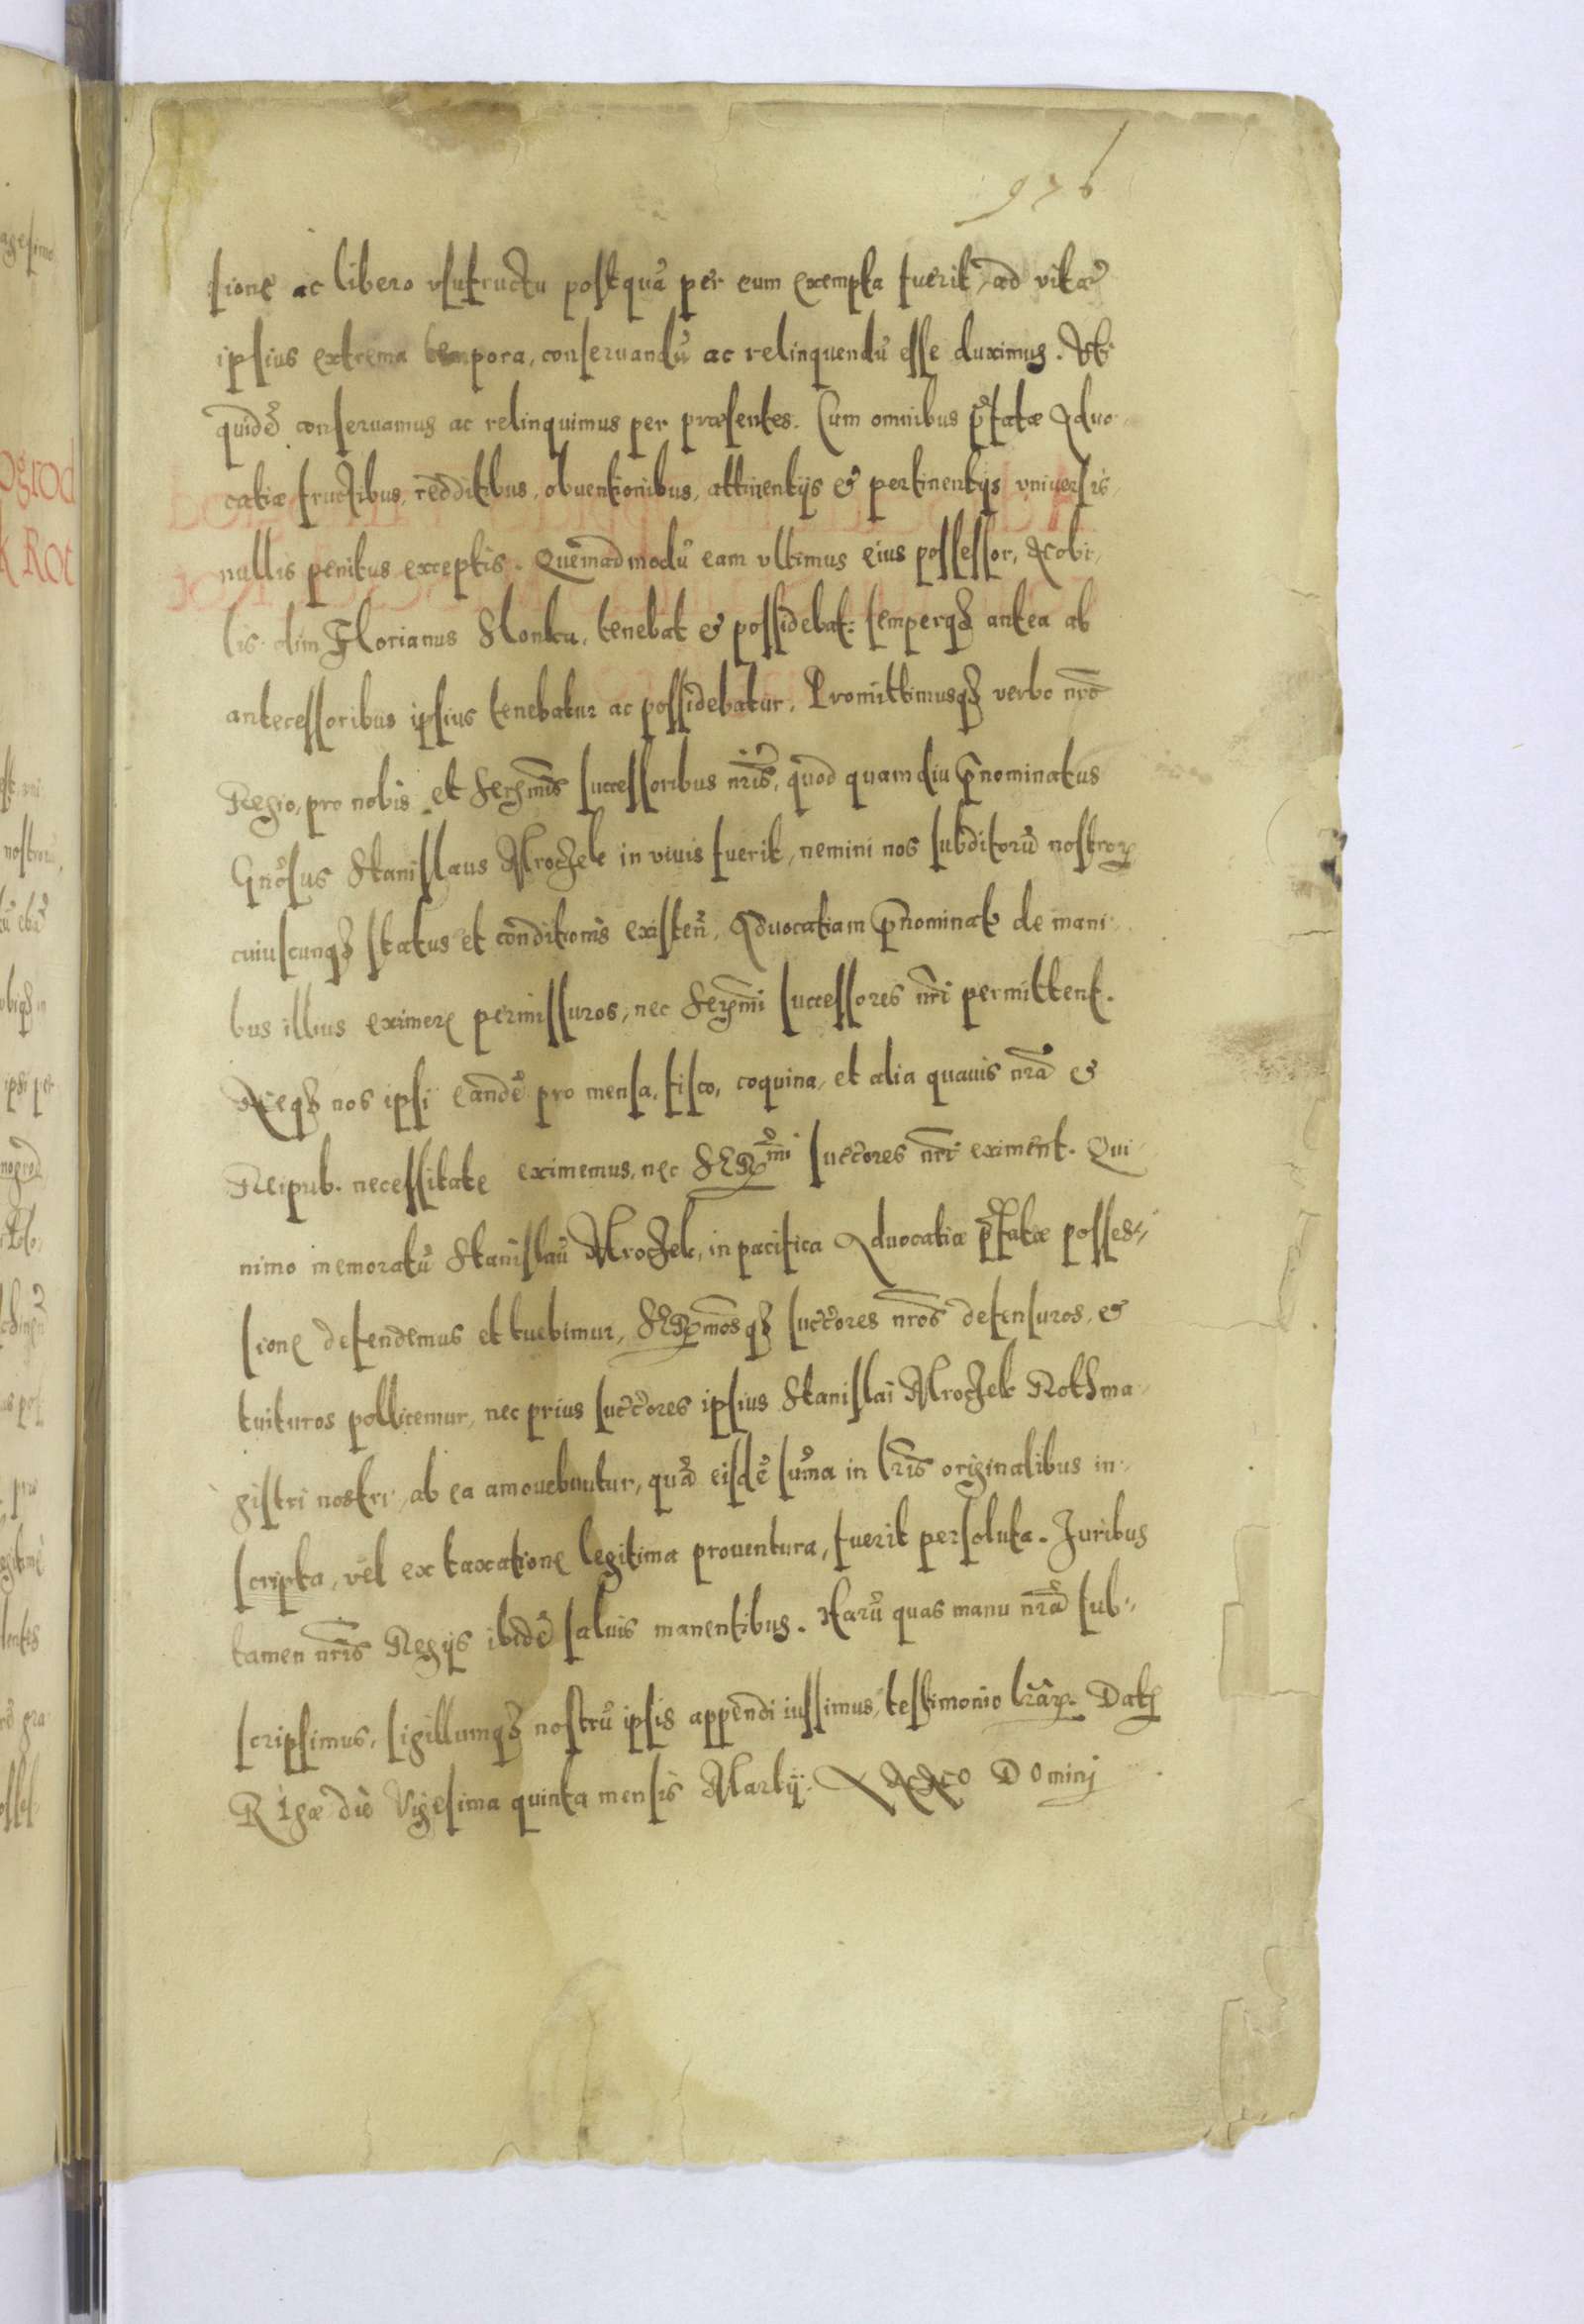 976
sione ac libero vsufructu postquā per eum exempta fuerit, ad vitæ
ipsius extrema tempora, conseruandū ac relinquendū esse duximus. Vti
quidē conseruamus ac relinquimus per præsentes. Cum omnibus p̄fatæ Aduo-
catiæ fructibus, redditibus, obuentionibus, attinentijs & pertinentijs vniuersis,
nullis penitus exceptis. Quemadmodū eam vltimus eius possessor, Nobi-
lis olim Florianus Slonka, tenebat & possidebat: semperq3 antea ab
antecessoribus ipsius tenebatur ac possidebatur. Promittimusq3 verbo nr̄o
Regio, pro nobis et Ser̄mis successoribus nr̄is, quod quamdiu p̄nominatus
Gn̄osus Stanislaus Mroczek in viuis fuerit, nemini nos subditorū nostror̄
cuiuscunq3 status et conditionis existen̄. Aduocatiam p̄nominat̄ de mani-
bus illius eximere permissuros, nec Ser̄mi successores nr̄i permittent.
Neq3 nos ipsi eandē pro mensa, fisco, coquina, et alia quauis nr̄a &
Reipub. necessitate eximemus, nec SER̄mi succ̄ores nr̄i eximent. Qui-
nimo memoratū Stanislaū Mroczek, in pacifica Aduocatiæ p̄fatæ posses-
sione defendemus et tuebimur, SER̄mosq3 succ̄ores nr̄os defensuros, &
tuituros pollicemur, nec prius succ̄ores ipsius Stanislai Mroczek Rothma-
gistri nostri, ab ea amouebuntur, quā eisdē sum̄a in lr̄is originalibus in-
scripta, vel ex taxatione legitima prouentura, fuerit persoluta. Juribus
tamen nr̄is Regijs ibidē saluis manentibus. Harū quas manu nr̄a sub-
scripsimus, sigillumq3 nostrū ipsis appendi iussimus, testimonio lr̄ar̄. Dat̄
Rigæ die Vigesima quinta mensis Martij. ANNO Domini